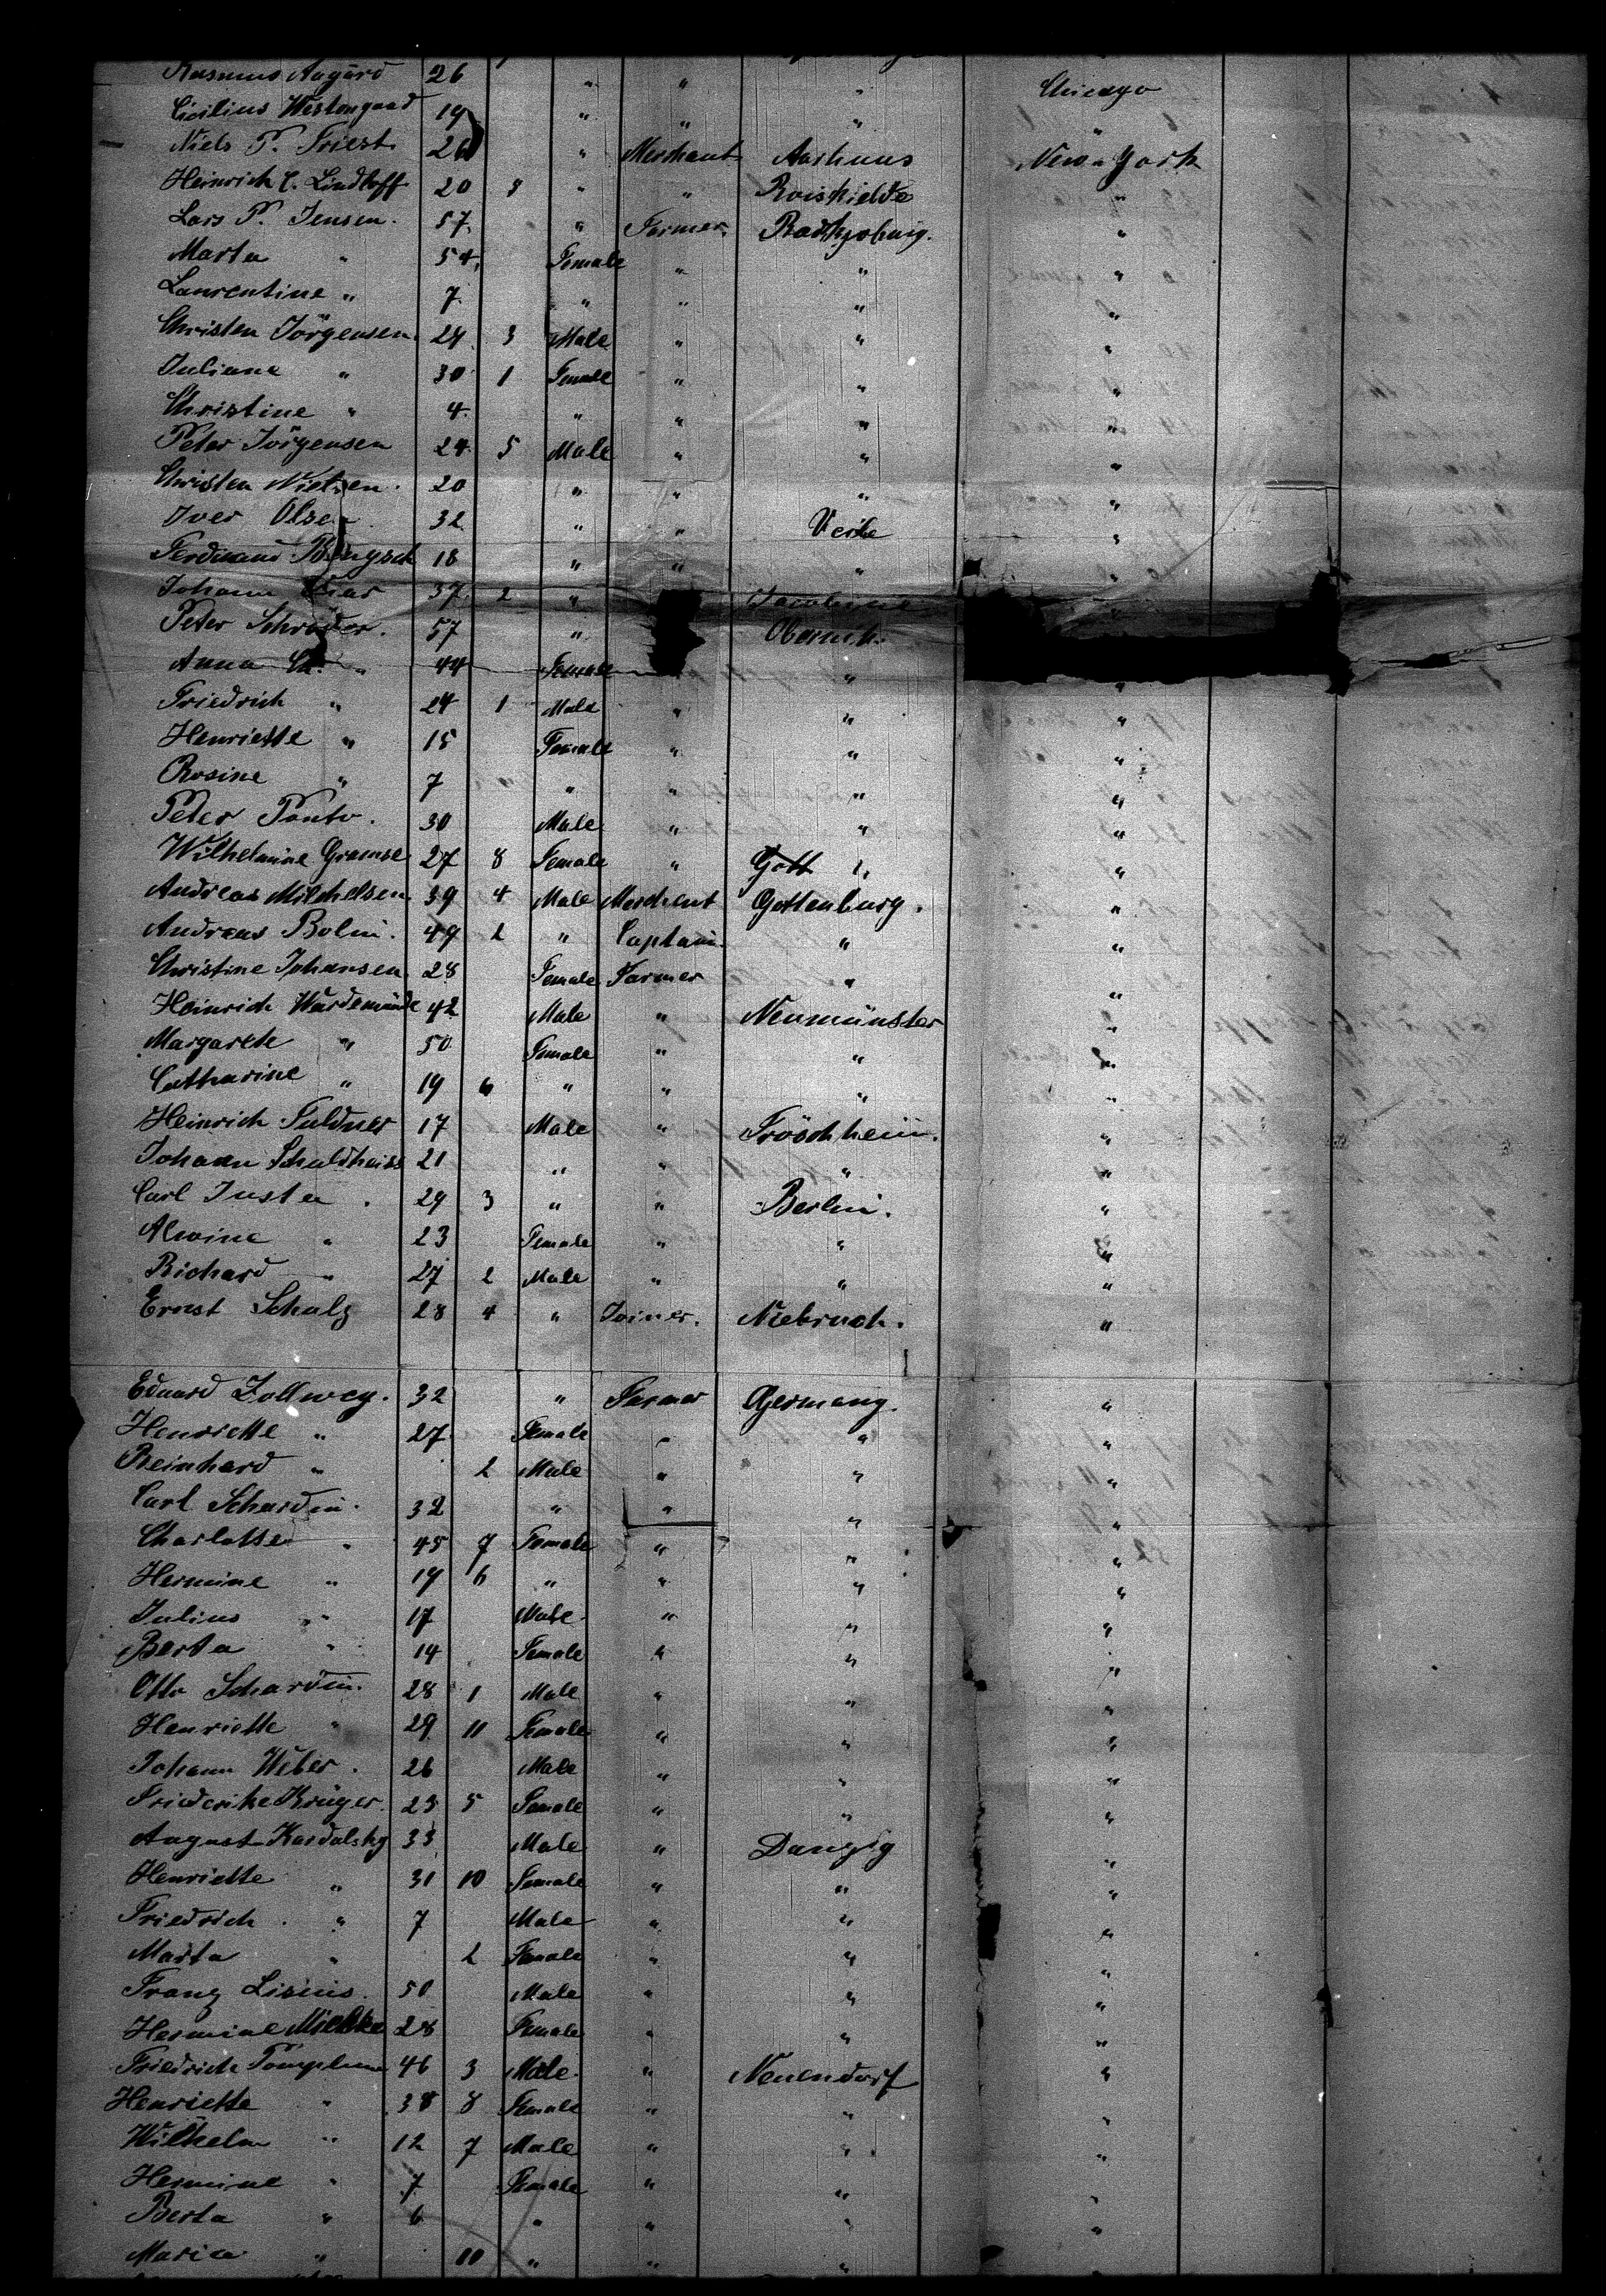 Rasmus Aagård 26 " " " Chicago
Cicilius Westengaard 19 " " " "
Niels P. Friest 26 " Merchant Aarhuus New-York
Heinrich C. Lindloff 20 5 " " Roiskielde "
Lars P. Jensen. 57 " Farmer "
Marta " 54 Female " " "
Laurentine " 7 " " " "
Christen Jörgensen 24 3 Male " " "
Juliane " 30 1 Female " " "
Christine " 4 " " " "
Peter Jörgensen 24 5 Male " " "
Christen Nielsen. 20 " " " "
Iver Olsen 32 " " Veile "
Ferdinand 18 " " " "
Johann 37 2 "
Peter Schröder. 57 "
Anna " 44 Female " "
Friedrich " 24 1 Male " " "
Henriette " 15 Female " " "
Rosine " 7 " " " "
Peter Panto. 30 Male " " "
Wilhelmine Gramse 27 8 Female " "
Andreas Milchelsen 39 4 Male Merchent Gottenburg. "
Andreas Bolin. 49 2 " Captain "  "
Christine Johansen 28 Female Farmer " "
Heinrich Wardemünde 42 Male " Neumünster "
Margarete " 50 Female " " "
Catharine " 19 6 " " " "
Heinrich Fuldner 17 Male " "
Johann Schuldheiss 21 " " " "
Carl Justa . 29 3 " " Berlin. "
Alwine " 23 Female " " "
Richard " 27 2 Male " " "
Ernst Schulz 28 4 " Joiner. Niebruch. "
Eduard Zollweg. 32 " Farmer Germany. "
Henriette " 27 Female " " "
Reinhard " 2 Male " " "
Carl Schardin. 32 " " " "
Charlotte " 45 7 Female " " "
Hermine " 19 6 " " " "
Julius " 17 Male " " "
Berta " 14 Female " " "
Otto Schardin. 28 1 Male " " "
Henriette " 29 11 Female " " "
Johann Weber. 26 Male " " "
Friederike Krüger. 23 5 Female " " "
August Kardalsky 33 Male " Danzig "
Henriette " 31 10 Female " " "
Friedrich " 7 Male " " "
Marta " 2 Female " " "
Franz Lisius. 50 Male " " "
Hermine Mielke 28 Female " " "
Friedrich Pomplun 46 3 Male " Neuendorf "
Henriette " 38 8 Female " " "
Wilhelm " 12 7 Male " " "
Hermine " 7 Female " " "
Berta " 6 " " " "
Maria " 10 " " " "